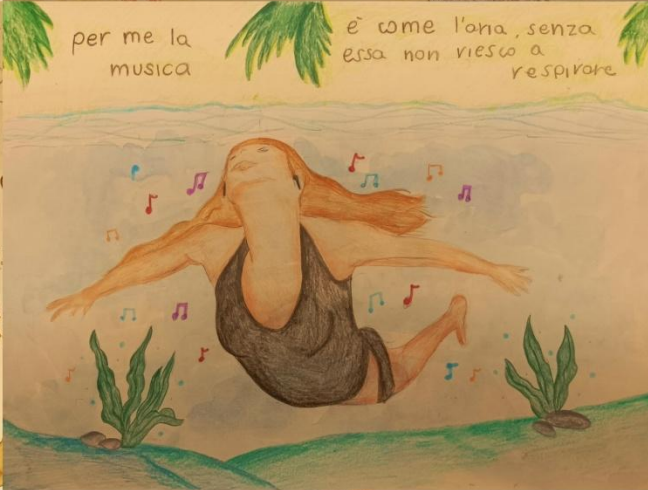 per me la
musica
è come l'aria, senza
essa non riesco a
respirare